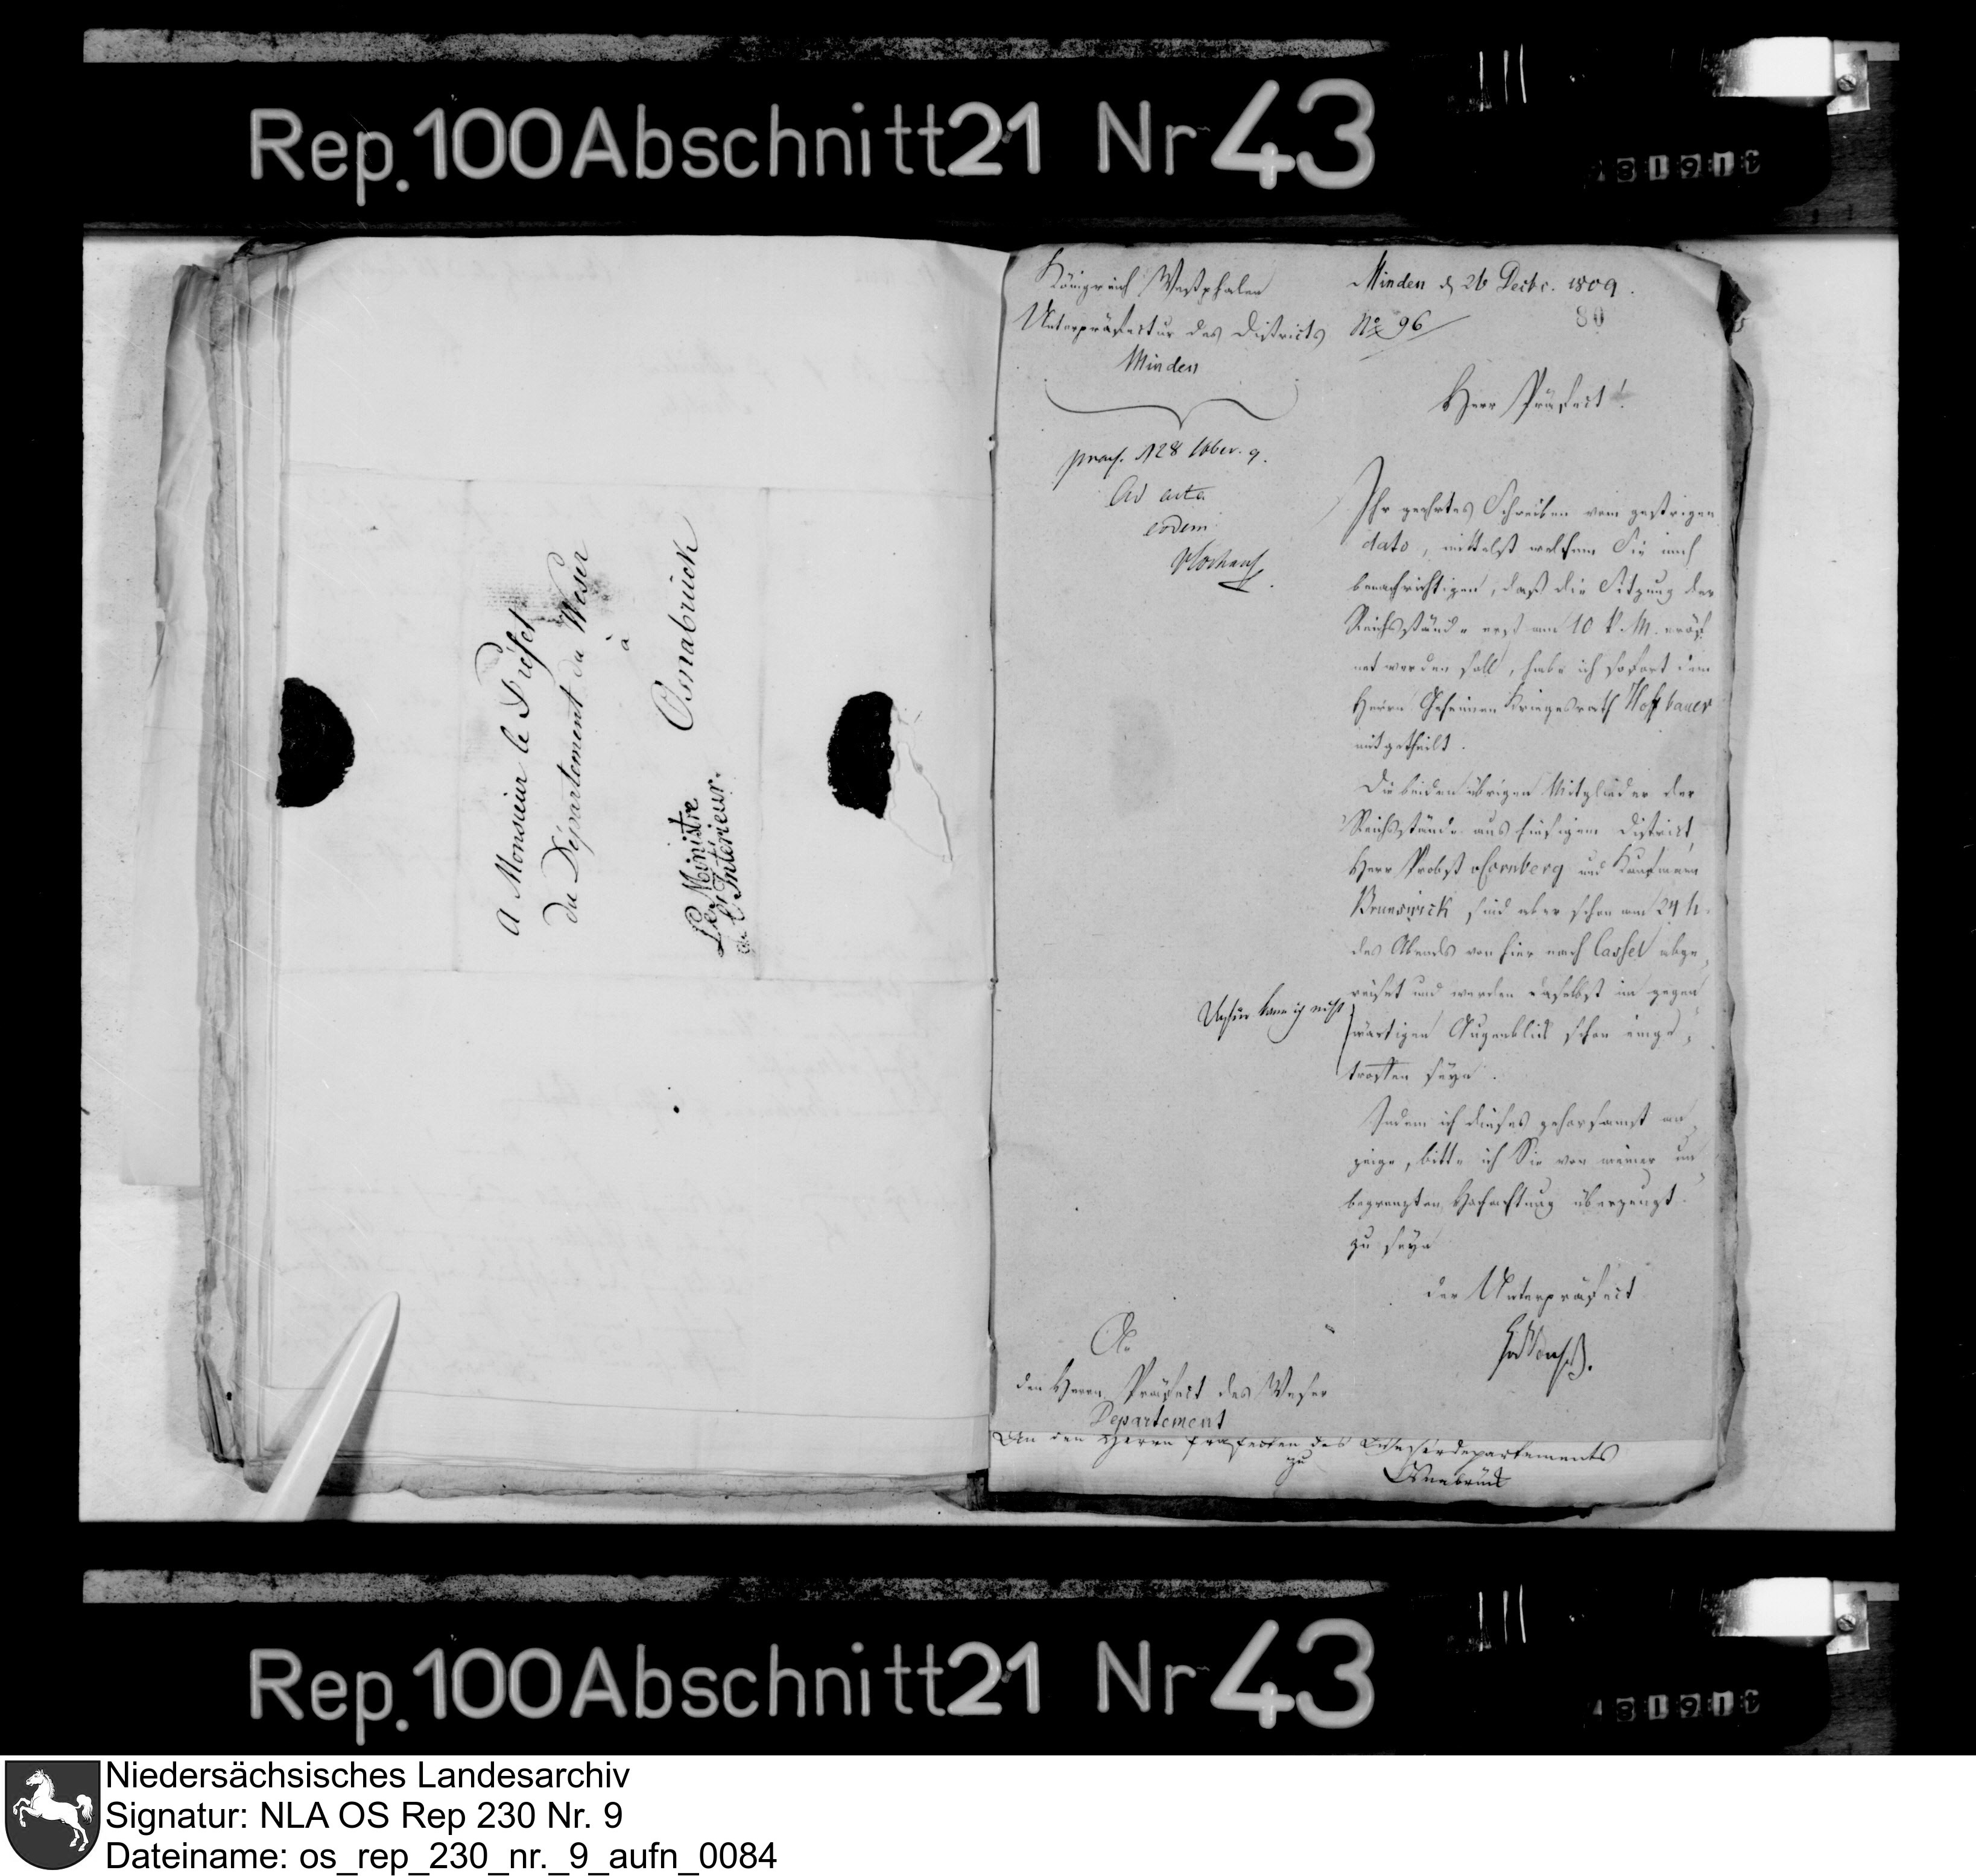 Rep. 100 Abschnitt 21 Nr 43
A Monsieur le Préfet
du Département du Weser
à
Osnabrück
Le Ministre
de l'Intérieur.
Königreich Westphalen
Unterpräfectur des Districts
Minden
Minden d 26 Decbr. 1809.
No 96
80
Herr Präfect!
praes. d 28 Xber. 9.
Ad acta
eodem
Ihr geehrtes Schreiben vom gestrigen
dato, mittelst welchem Sie mich
benachrichtigen, daß die Sitzung der
Reichsstände erst am 10 k. M. eröf
net werden soll, habe ich sofort dem
Herrn Geheimen Kriegesrath Hoffbauer
mitgetheilt.
Die beiden übrigen Mitglieder der
Reichsstände aus hiesigem District
Herr Probst vCornberg und Kaufmann
Brunswick sind aber schon am 24 h.
des Abends von hier nach Cassel abge,
reiset und werden daselbst im gegen
wärtigen Augenblick schon einge,
troffen seyn.
kann ich nicht
Indem ich dieses gehorsamst an,
zeige, bitte ich Sie von meiner un
begrenzten Hochachtung überzeugt
zu seyn
der Unterpräfect
An
den Herrn Präfect des Weser
Departement
An den Herrn Präfecten des Weserdepartements
zu
Osnabrück
Rep. 100 Abschnitt 21 Nr 43
Niedersächsisches Landesarchiv
Signatur: NLA OS Rep 230 Nr. 9
Dateiname: os_rep_230_nr._9_aufn_0084